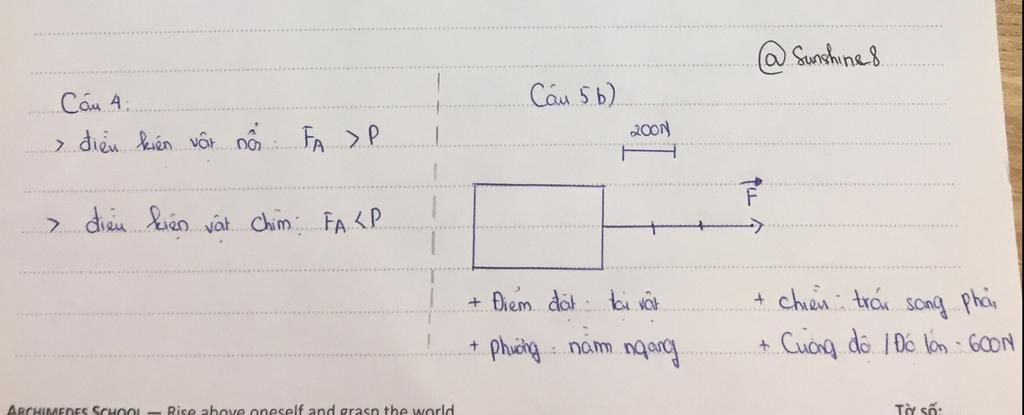 @ Sunshine8
Câu 4:
> điều kiện vật nổi: FA > P
> điều kiện vật chìm: FA < P
Câu 5 b)
200N
F
+ Điểm đặt: tại vật
+ phương: nằm ngang
+ chiều: trái sang phải
+ Cường độ / Độ lớn: 600N
ARCHIMEDES SCHOOL — Rise above oneself and grasp the world
Tờ số: